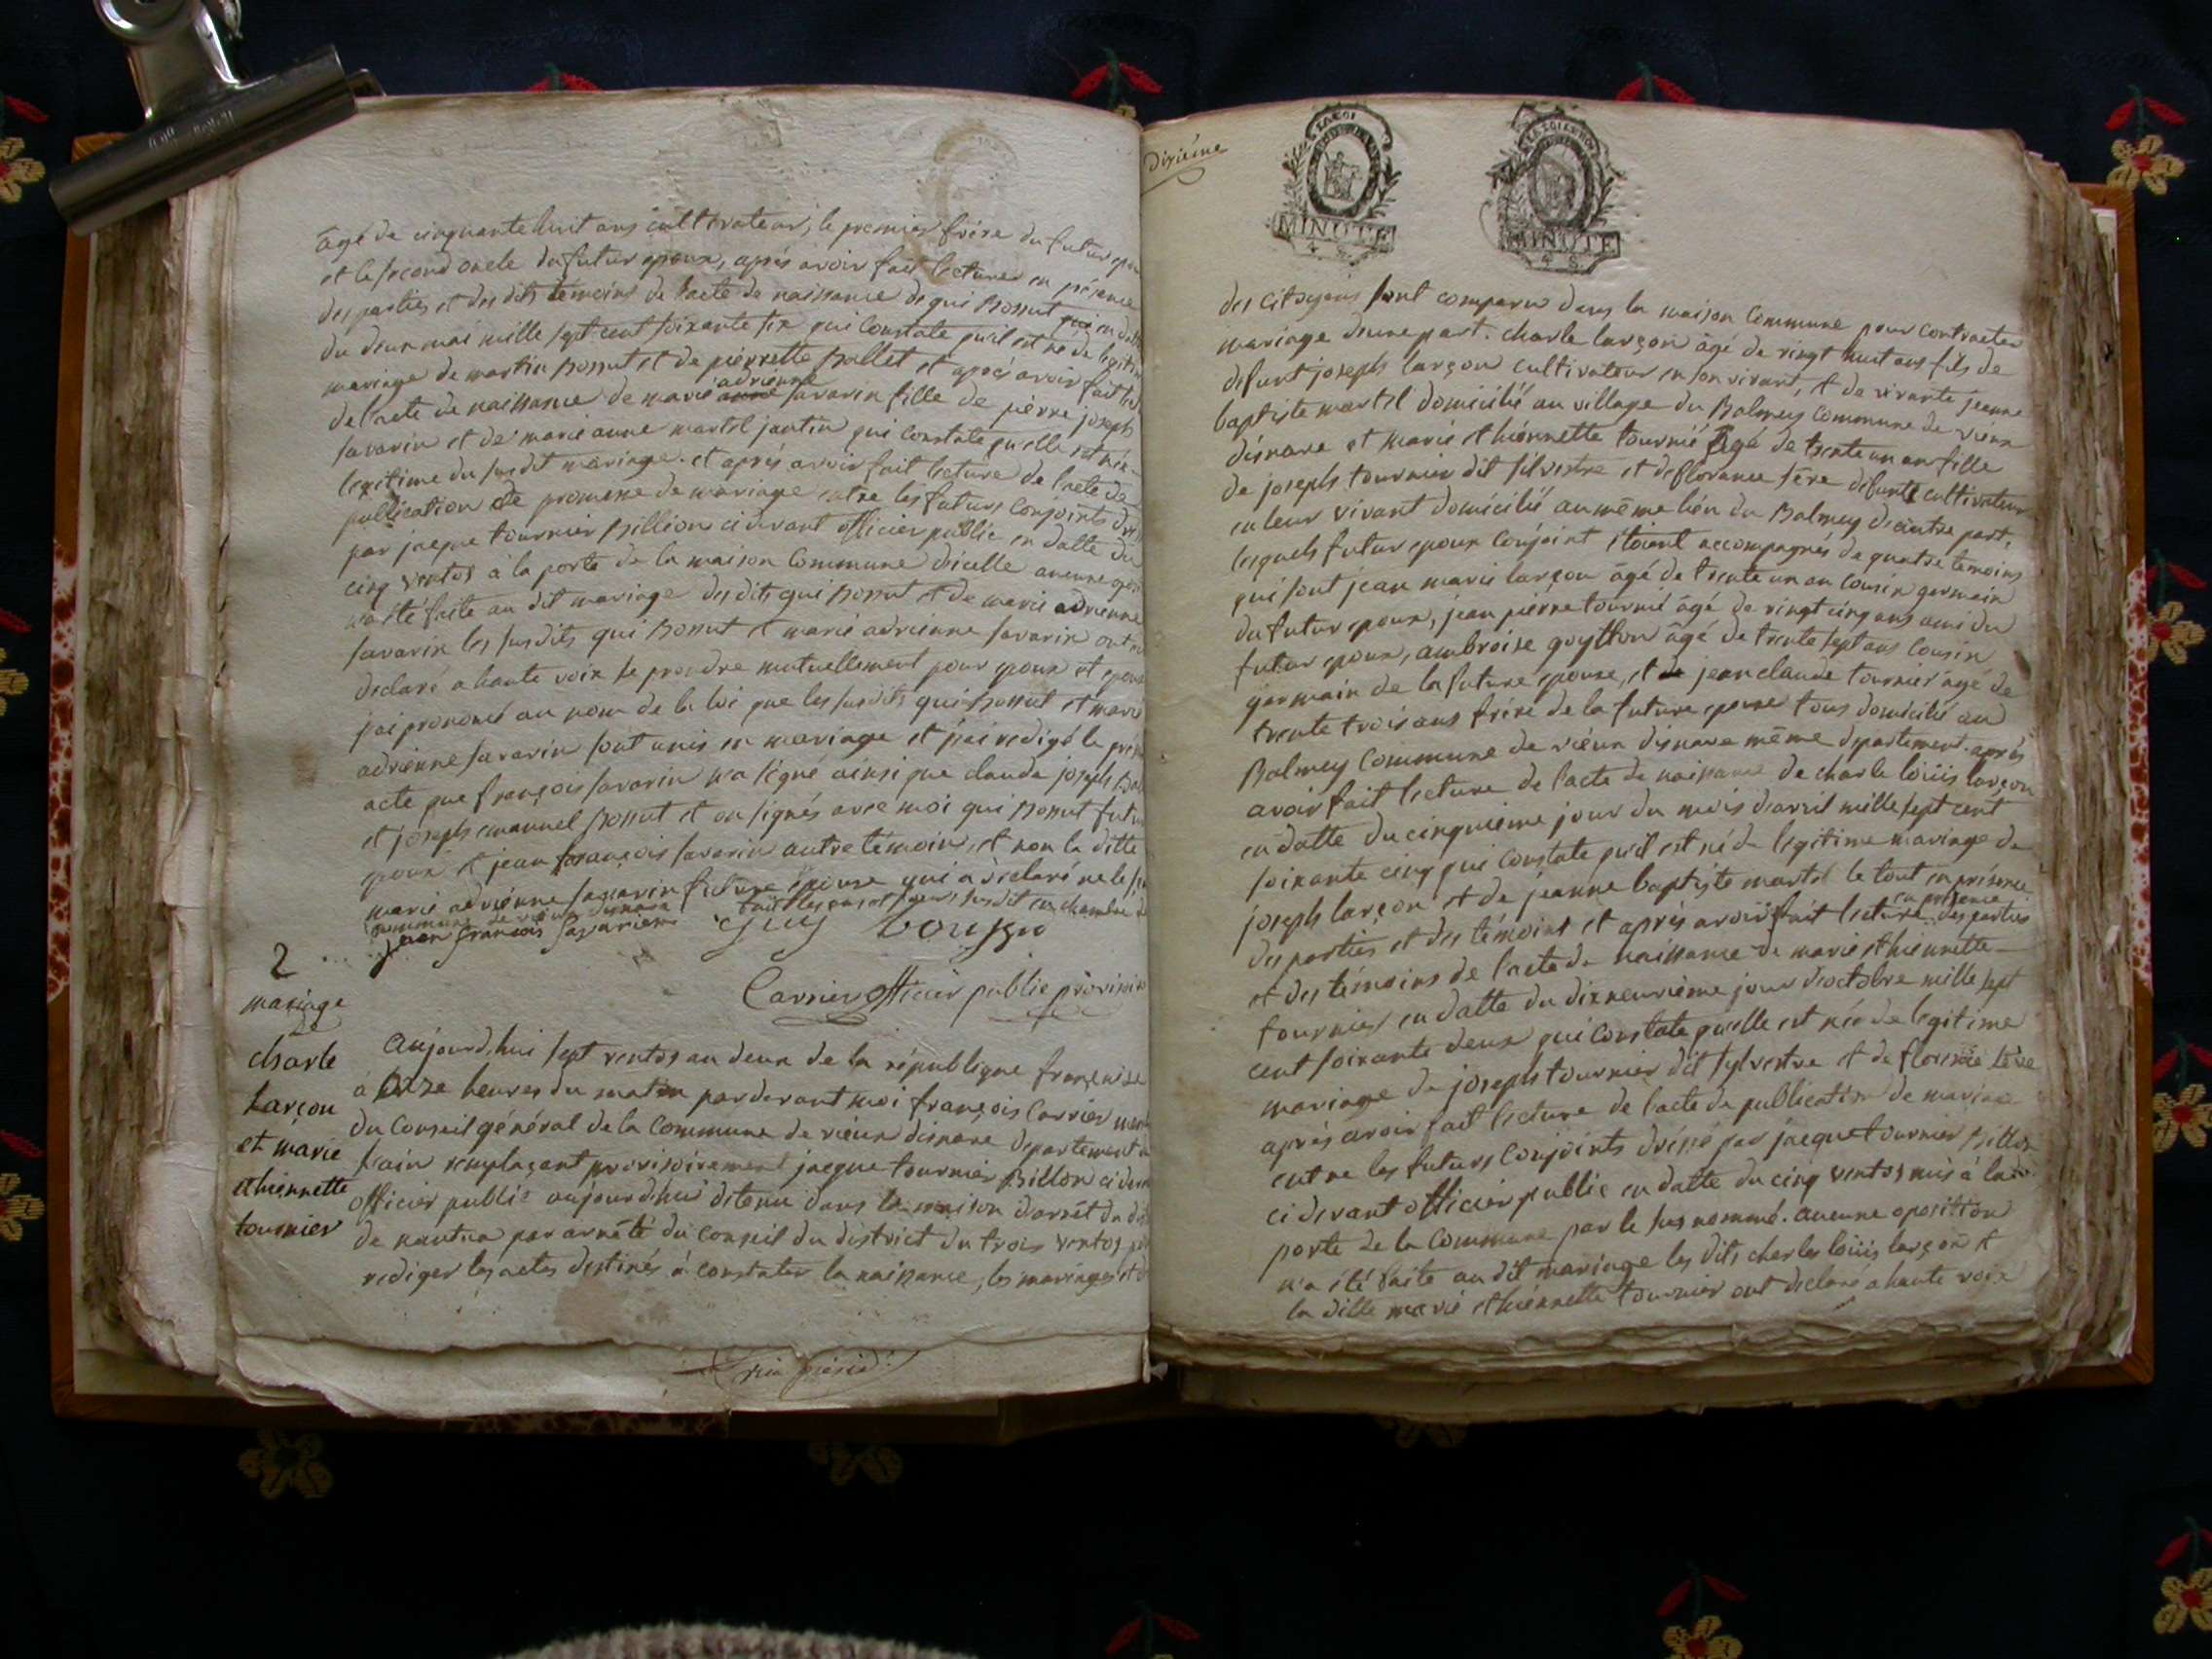 âgé de cinquante huit ans cultivateur, le premier frère du futur
et le second oncle du futur epoux, après avoir fait lecture en présence
des parties et des dits temoins de l'acte de naissance de qui Bossut
du deux mai mille sept cent soixante six qui constate qu'il est né de legitime
mariage de martin Bossut et de pierrette Ballet et après avoir fait
de l'acte de naissance de marie adrienne savarin fille de pierre joseph
savarin et de marie anne martel jantin qui constate qu'elle est née
legitime du susdit mariage. et après avoir fait lecture de l'acte de
publication de promesse de mariage entre les futurs conjoints
par jacque tournier Billion ci devant officier public en datte du
cinq ventos à la porte de la maison commune d'icelle aucune
n'a été faite au dit mariage des dits qui Bossut et de marie adrienne
savarin les susdits qui Bossut et marie adrienne savarin ont
declaré a haute voix se prendre mutuellement pour epoux et
j'ai prononcé au nom de la loi que les susdits qui Bossut et marie
adrienne savarin sont unis en mariage et j'ai redigé le
acte que françois savarin n'a signé ainsi que claude joseph
et joseph emannuel Bossut et on signés avec moi qui Bossut futur
epoux et jean françois savarin autre témoin, et non la ditte
marie adrienne savarin future épouse qui a déclaré ne le
fait les ans et jours susdit en chambre
commune de vieux disnave
jean francois savarin
Carrier officier public provisoire
2
mariage
de
charle
Larçon
et marie
ethiennette
tournier
aujourd'hui sept ventos an deux de la république françoise
à onze heures du matin pardevant moi françois Carrier
du conseil général de la commune de vieux disnave departement
l'ain remplaçant provisoirement jacque tournier Billion ci devant
officier public aujourd'hui détenu dans la maison d'arrêt du
de nantua par arrêté du conseil du district du trois ventos
rediger les actes destinés à constater la naissance, les mariages et
Dixiéme
LA LOI
MINUTE
4 S.
MINUTE
4 S.
des citoyens sont comparu dans la maison commune pour contracter
mariage d'une part. charle larçon âgé de vingt huit ans fils de
défunt joseph larçon cultivateur en son vivant, et de vivante jeanne
baptiste martel domicilié au village du Balmey commune de vieux
disnave et marie ethiennette tournié âgé de trente un an fille
de joseph tournier dit silvestre et de florance sere defunts cultivateur
en leur vivant domicilié au même lieu du Balmey d'autre part.
lesquels futur epoux conjoint étoient accompagnés de quatre temoins
qui sont jean marie larçon âgé de trente un an cousin germain
du futur epoux, jean pierre tournié âgé de vingt cinq ans ami du
futur epoux, ambroise goyffon âgé de trente sept ans cousin
germain de la future épouse, et de jean claude tournier âgé de
trente trois ans frére de la future epouse tous domicilié au
Balmey commune de vieux disnave même departement. après
avoir fait lecture de l'acte de naissance de charle loüis larçon
en datte du cinquieme jour du mois d'avril mille sept cent
soixante cinq qui constate qu'il est né de legitime mariage de
joseph larçon et de jeanne baptiste martel le tout en présence
des parties et des témoins et après avoir fait lecture en présence des parties
et des témoins de l'acte de naissance de marie ethiennette
tournier en datte du dixneuvieme jour d'octobre mille sept
cent soixante deux qui constate qu'elle est née de legitime
mariage de joseph tournier dit sylvestre et de florence sere
après avoir fait lecture de l'acte de publication de mariage
entre les futurs conjoints dréssé par jacque tournier Billion
ci devant officier public en datte du cinq ventos mis à la
porte de la commune par le sus nommé. aucune oposition
n'a été faite au dit mariage les dits charles loüis larçon et
la ditte marie ethiennette tournier ont déclaré a haute voix